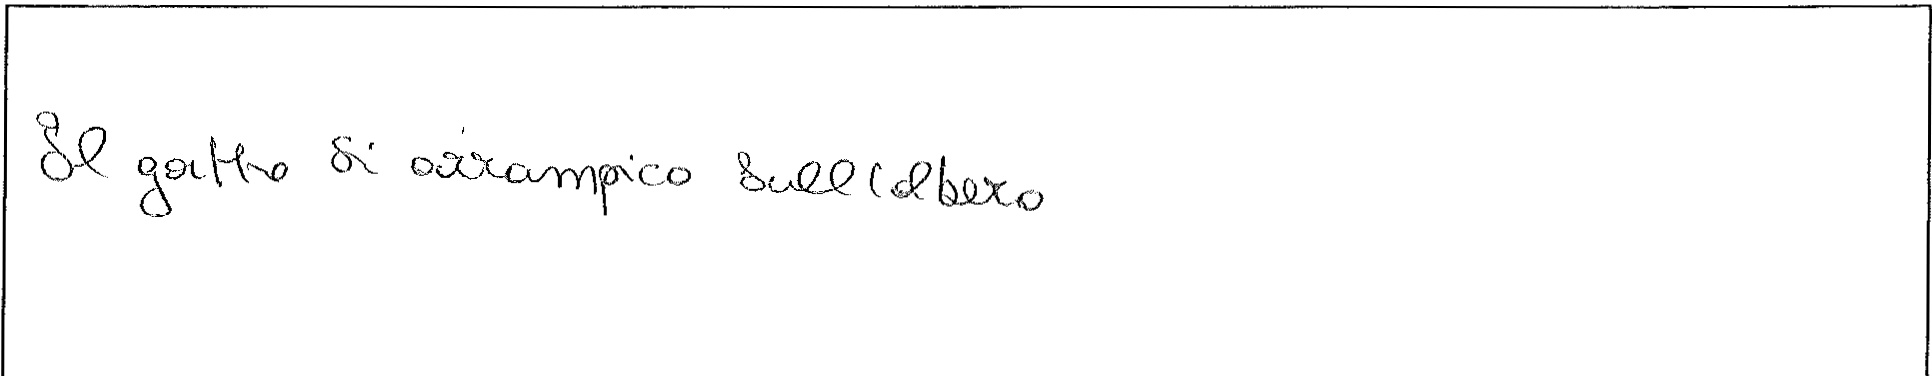 Il gatto si arrampico sull'albero